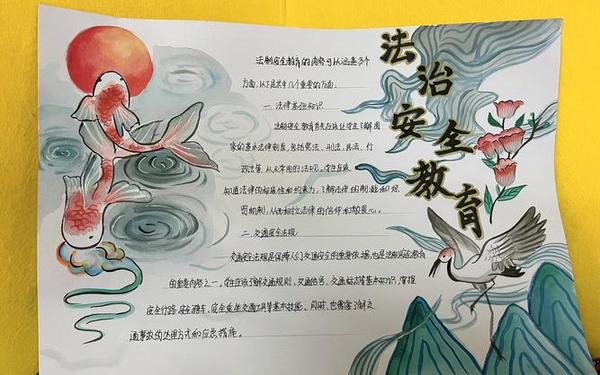 法治安全教育
法制安全教育的内容可以涵盖多个
方面,以下是其中几个重要的方面:
一、法律基础知识
法制安全教育首先应该让学生了解国
家的基本法律制度,包括宪法、刑法、民法、行
政法等,以及常用的法规。学生应该
知道法律的权威性和约束力,了解法律的制裁和
机制,从而树立法律的信仰和敬畏心。
二、交通安全法规
交通安全法规是保障人们交通安全的重要依据,也是法制安全教育
的重要内容之一。学生应该了解交通规则、交通信号、交通标志等基本知识,掌握
安全行路、安全骑车、安全乘坐交通工具等基本技能。同时,也需要了解交
通事故的处理方式和应急措施。